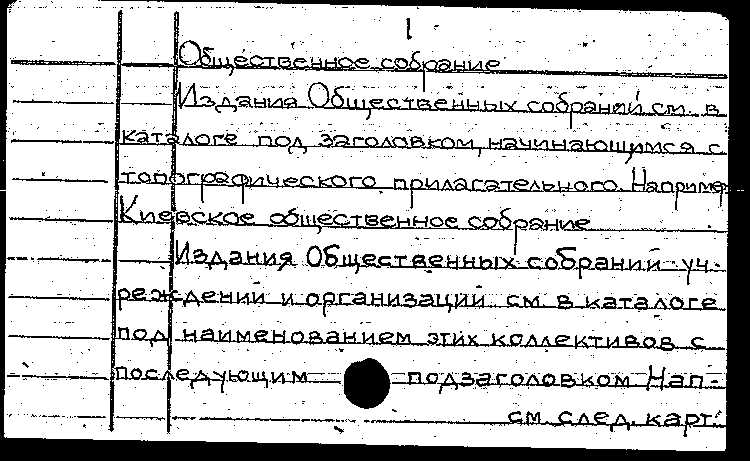 1
Общественное собрание
Издания Общественных собраний см. в
каталоге под заголовком, начинающимся с
топографического прилагательного. Наприме
Киевское общественное собрание
Издания Общественных собраний уч-
реждений и организаций см. в каталоге
под наименованием этих коллективов с
последующим подзаголовком Нап-
см. след. карт.